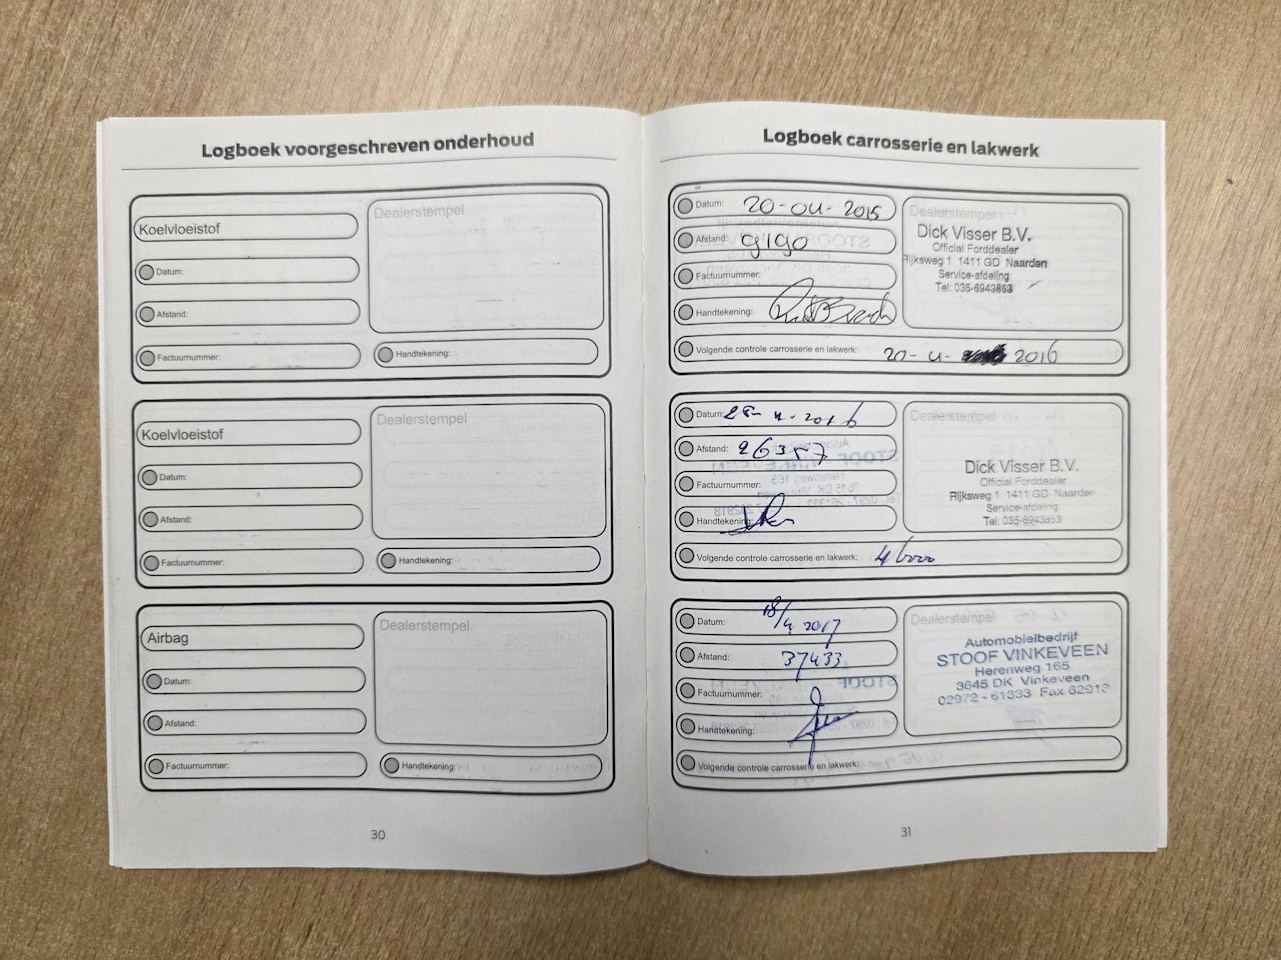 Logboek voorgeschreven onderhoud
Koelvloeistof
Dealerstempel
Datum:
Afstand:
Factuurnummer:
Handtekening:
Koelvloeistof
Dealerstempel
Datum:
Afstand:
Factuurnummer:
Handtekening:
Airbag
Dealerstempel
Datum:
Afstand:
Factuurnummer:
Handtekening:
30
Logboek carrosserie en lakwerk
Datum: 20-04-2015
Afstand: 9190
Factuurnummer:
Handtekening:
Dealerstempel
Dick Visser B.V.
Official Forddealer
Rijksweg 1 1411 GD Naarden
Service-afdeling
Tel: 035-6943853
Volgende controle carrosserie en lakwerk: 20-4- 2016
Datum: 28-4-2016
Afstand: 26357
Factuurnummer:
Handtekening:
Dealerstempel
Dick Visser B.V.
Official Forddealer
Rijksweg 1 1411 GD Naarden
Service-afdeling
Tel: 035-6943853
Volgende controle carrosserie en lakwerk: 46000
Datum: 18/4 2017
Afstand: 37433
Factuurnummer:
Handtekening:
Dealerstempel
Automobielbedrijf
STOOF VINKEVEEN
Herenweg 165
3645 DK Vinkeveen
02972 - 61333 Fax 62913
Volgende controle carrosserie en lakwerk:
31